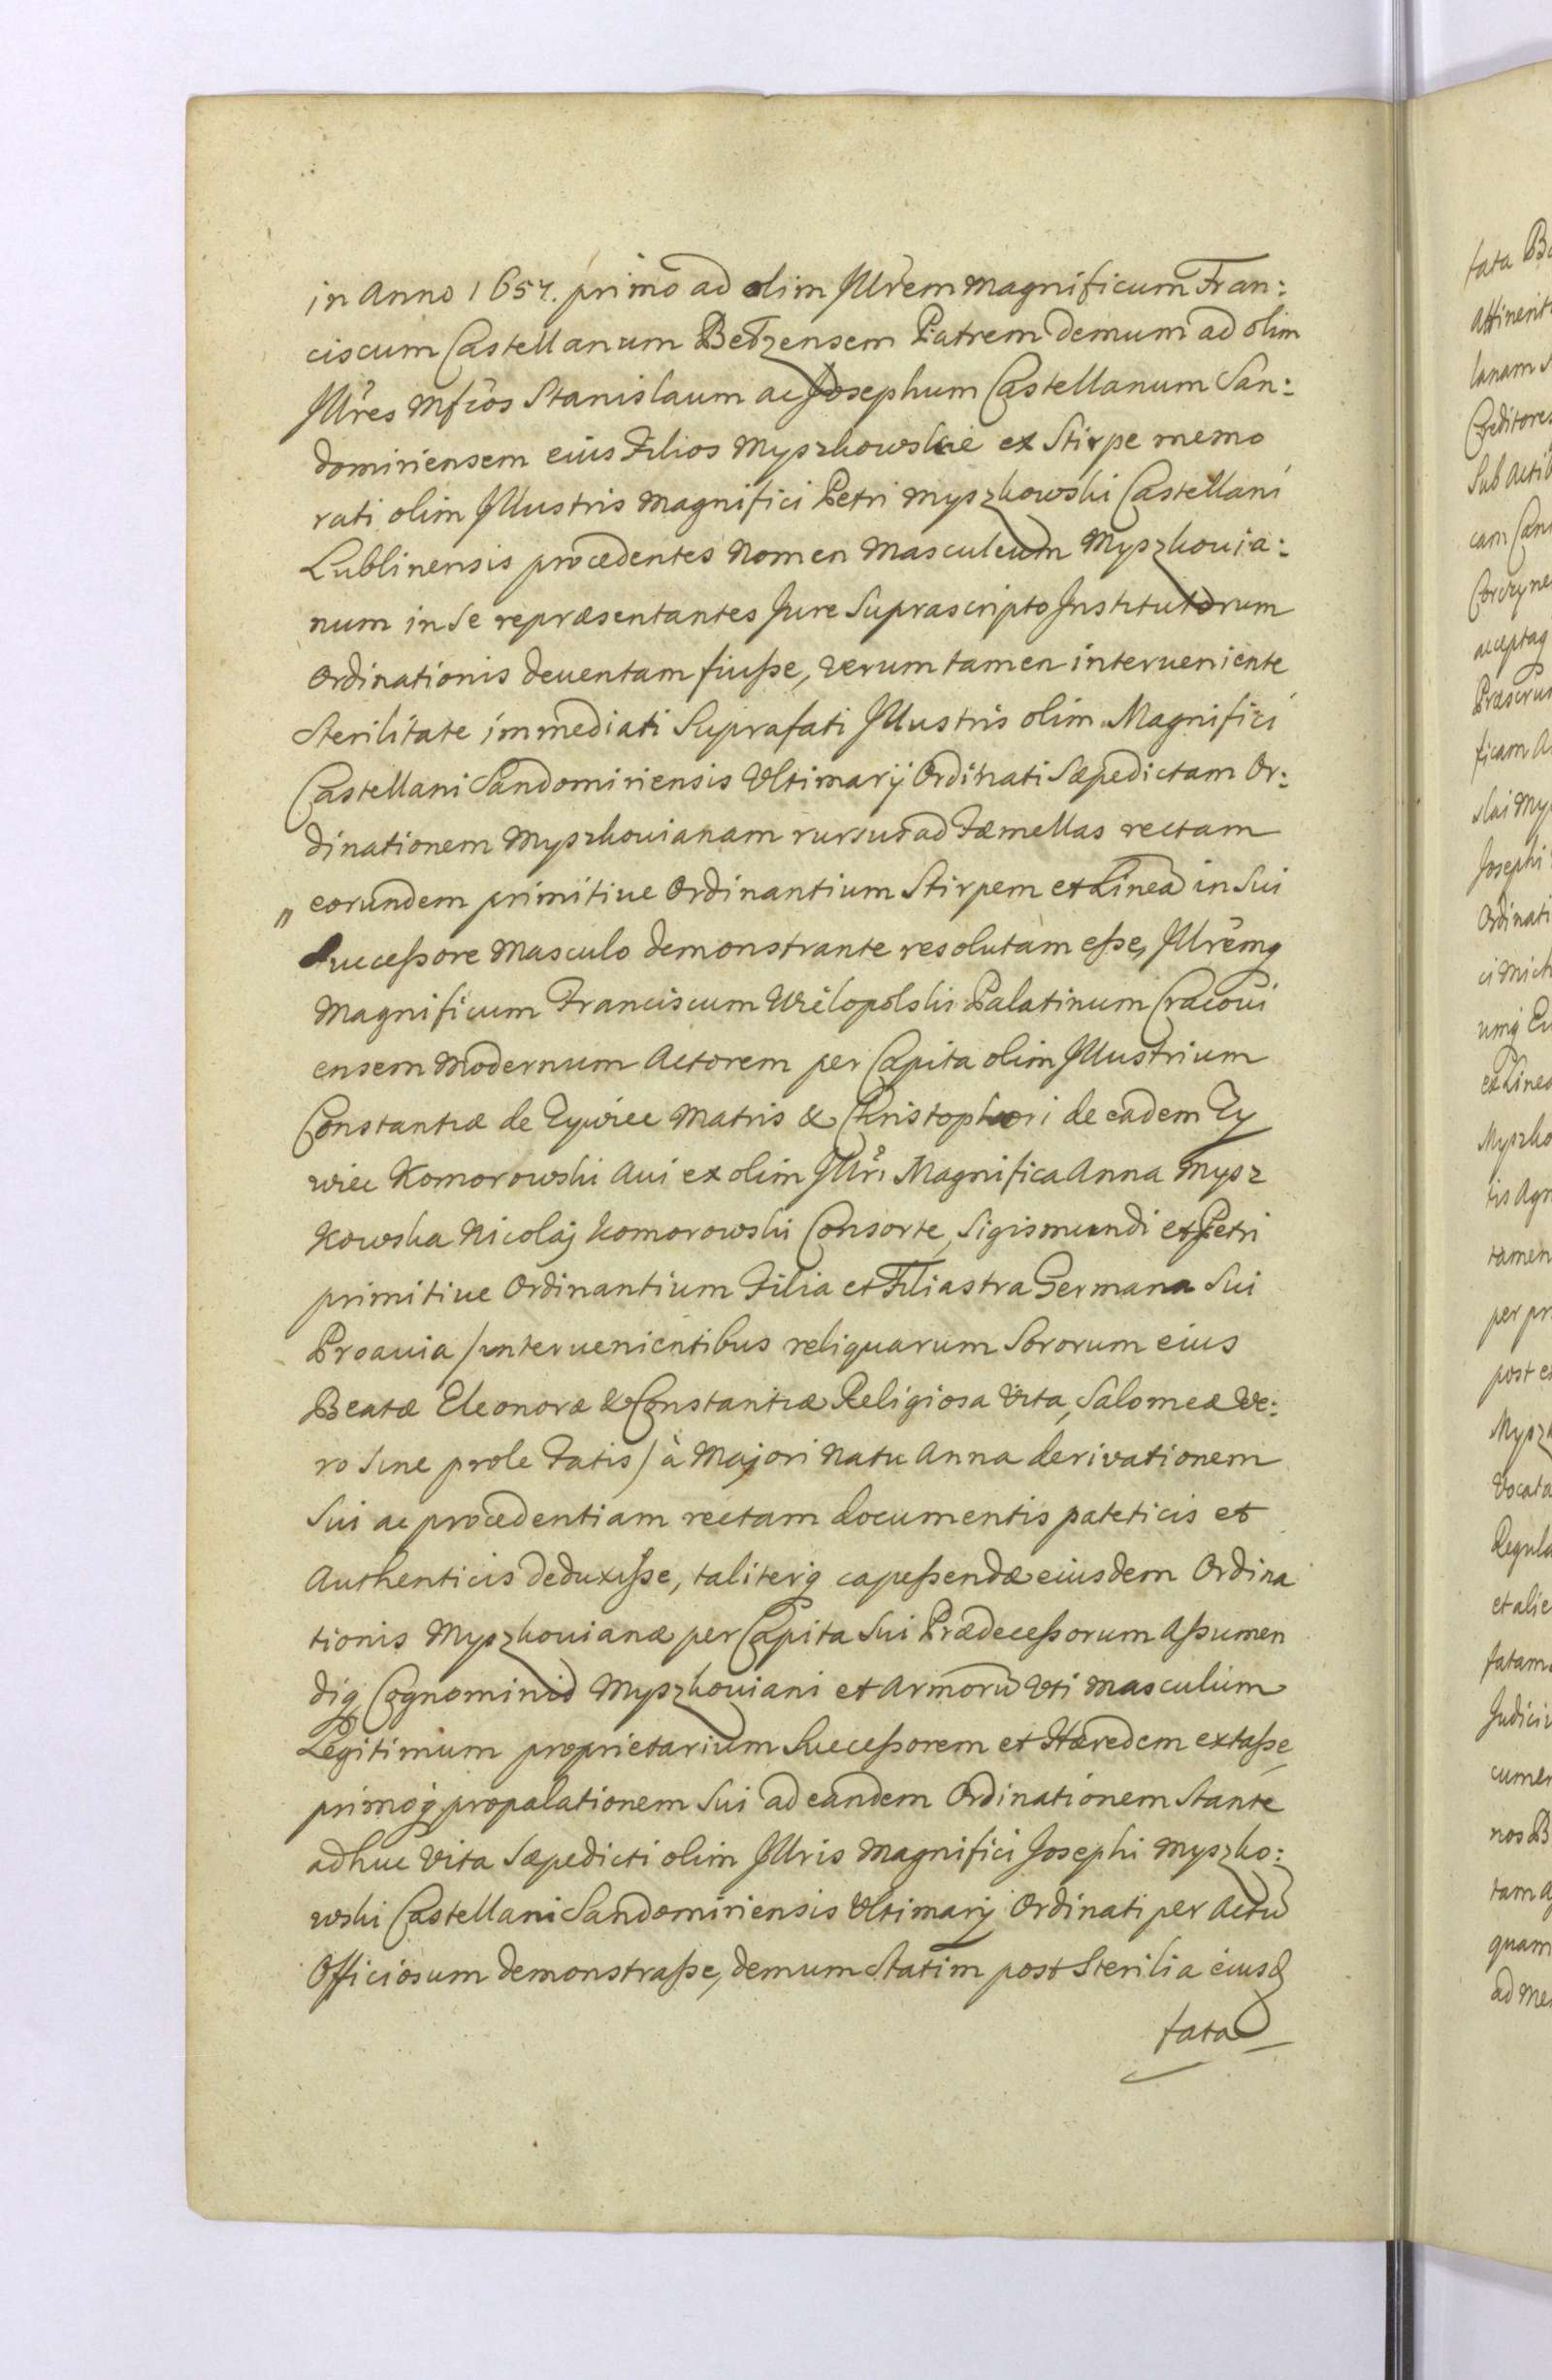 in Anno 1657. primo ad olim Jllrem Magnificum Fran:
ciscum Castellanum Bełzensem Patrem demum ad olim
Jllres Mfcos Stanislaum ac Josephum Castellanum San:
domiriensem eius Filios Myszkowskie ex Stirpe memo
rati olim Jllustris Magnifici Petri Myszkowski Castellani
Lublinensis procedentes Nomen Masculeum Myszkouia:
num in se repræsentantes Jure Suprascripto Institutorum
Ordinationis deuentam fiuſse, verum tamen interueniente
Sterilitate immediati Suprafati Jllustris olim Magnifici
Castellani Sandomiriensis Vltimarij Ordinati Sæpedictam Or:
dinationem Myszkouianam rursus ad Fæmellas rectam
„ eorundem primitiue Ordinantium Stirpem et Linea in Sui
Succeſsore Masculo demonstrante resolutam eſse, Jllremq
Magnificum Franciscum Wielopolski Palatinum Cracoui
ensem Modernum Actorem per Capita olim Jllustrium
Constantiæ de Zywiec Matris & Christophori de eadem Zy
wiec Komorowski Aui ex olim Jllri Magnifica Anna Mysz
Kowska Nicolaj Komorowski Consorte, Sigismundi et Petri
primitiue Ordinantium Filia et Filiastra Germana Sui
Proauia /interuenientibus reliquarum Sororum eius
Beatæ Eleonoræ & Constantiæ Religiosa Vita, Salomeæ Ve:
ro Sine prole Fatis/ à Majori Natu Anna derivationem
Sui ac procedentiam rectam documentis pateticis et
Authenticis deduxiſse, taliterq capeſsendæ eiusdem Ordina
tionis Myszkouianæ per Capita Sui Prædeceſsorum Aſsumen
diq Cognominis Myszkouiani et Armorū Vti masculum
Legitimum proprietarium Succeſsorem et Hæredem extaſse,
primoq propalationem Sui ad eandem Ordinationem Stante
adhuc Vita Sæpedicti olim Jllris Magnifici Josephi Myszko:
wski Castellani Sandomiriensis Vltimarij Ordinati per Actū
Officiosum demonstraſse, demum Statim post Sterilia eiusd
fata